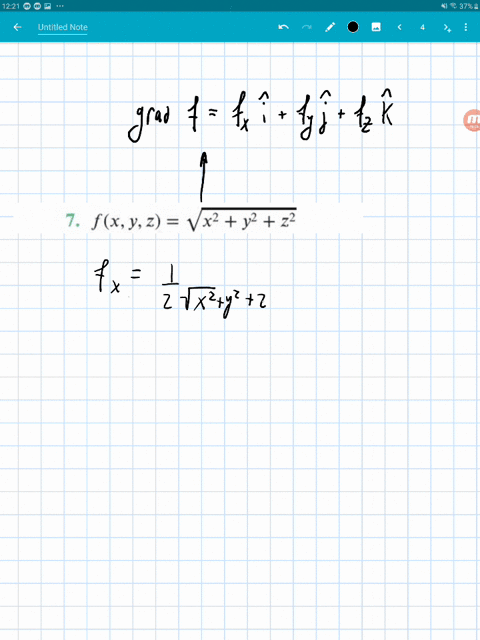 12:21 37%
Untitled Note 4
grad f = f_x î + f_y ĵ + f_z k̂
7. f(x, y, z) = √(x² + y² + z²)
f_x = 1/(2√(x²+y²+z